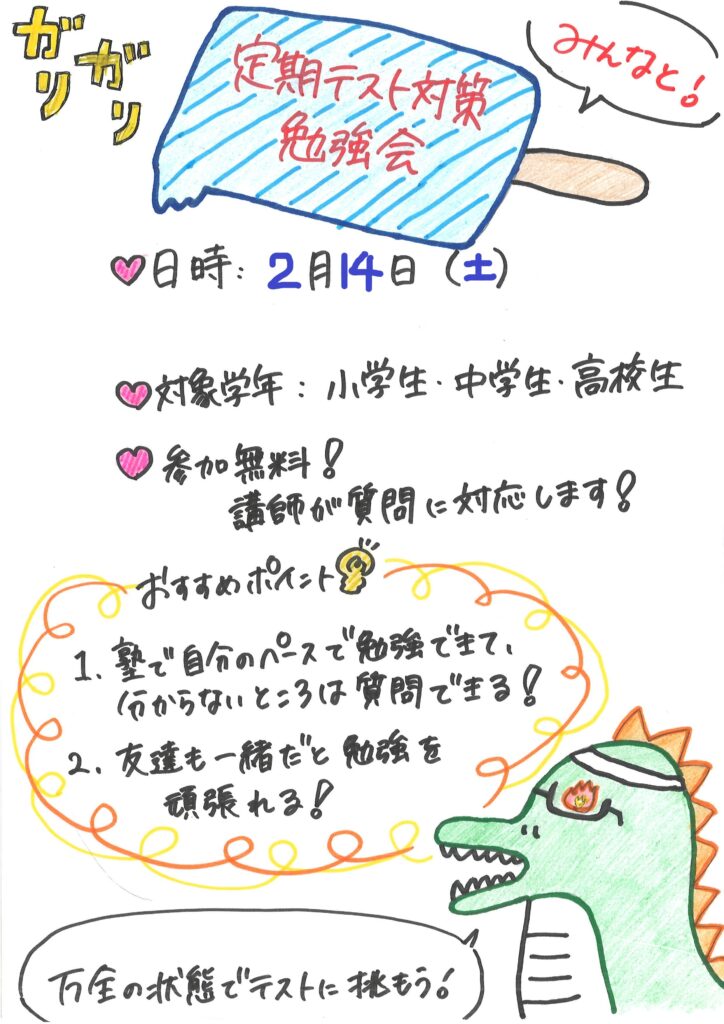 ガリ
ガリ
定期テスト対策
勉強会
みんなと！
日時：2月14日（土）
対象学年：小学生・中学生・高校生
参加無料！
講師が質問に対応します！
おすすめポイント
1. 塾で自分のペースで勉強できて、
分からないところは質問できる！
2. 友達も一緒だと勉強を
頑張れる！
万全の状態でテストに挑もう！